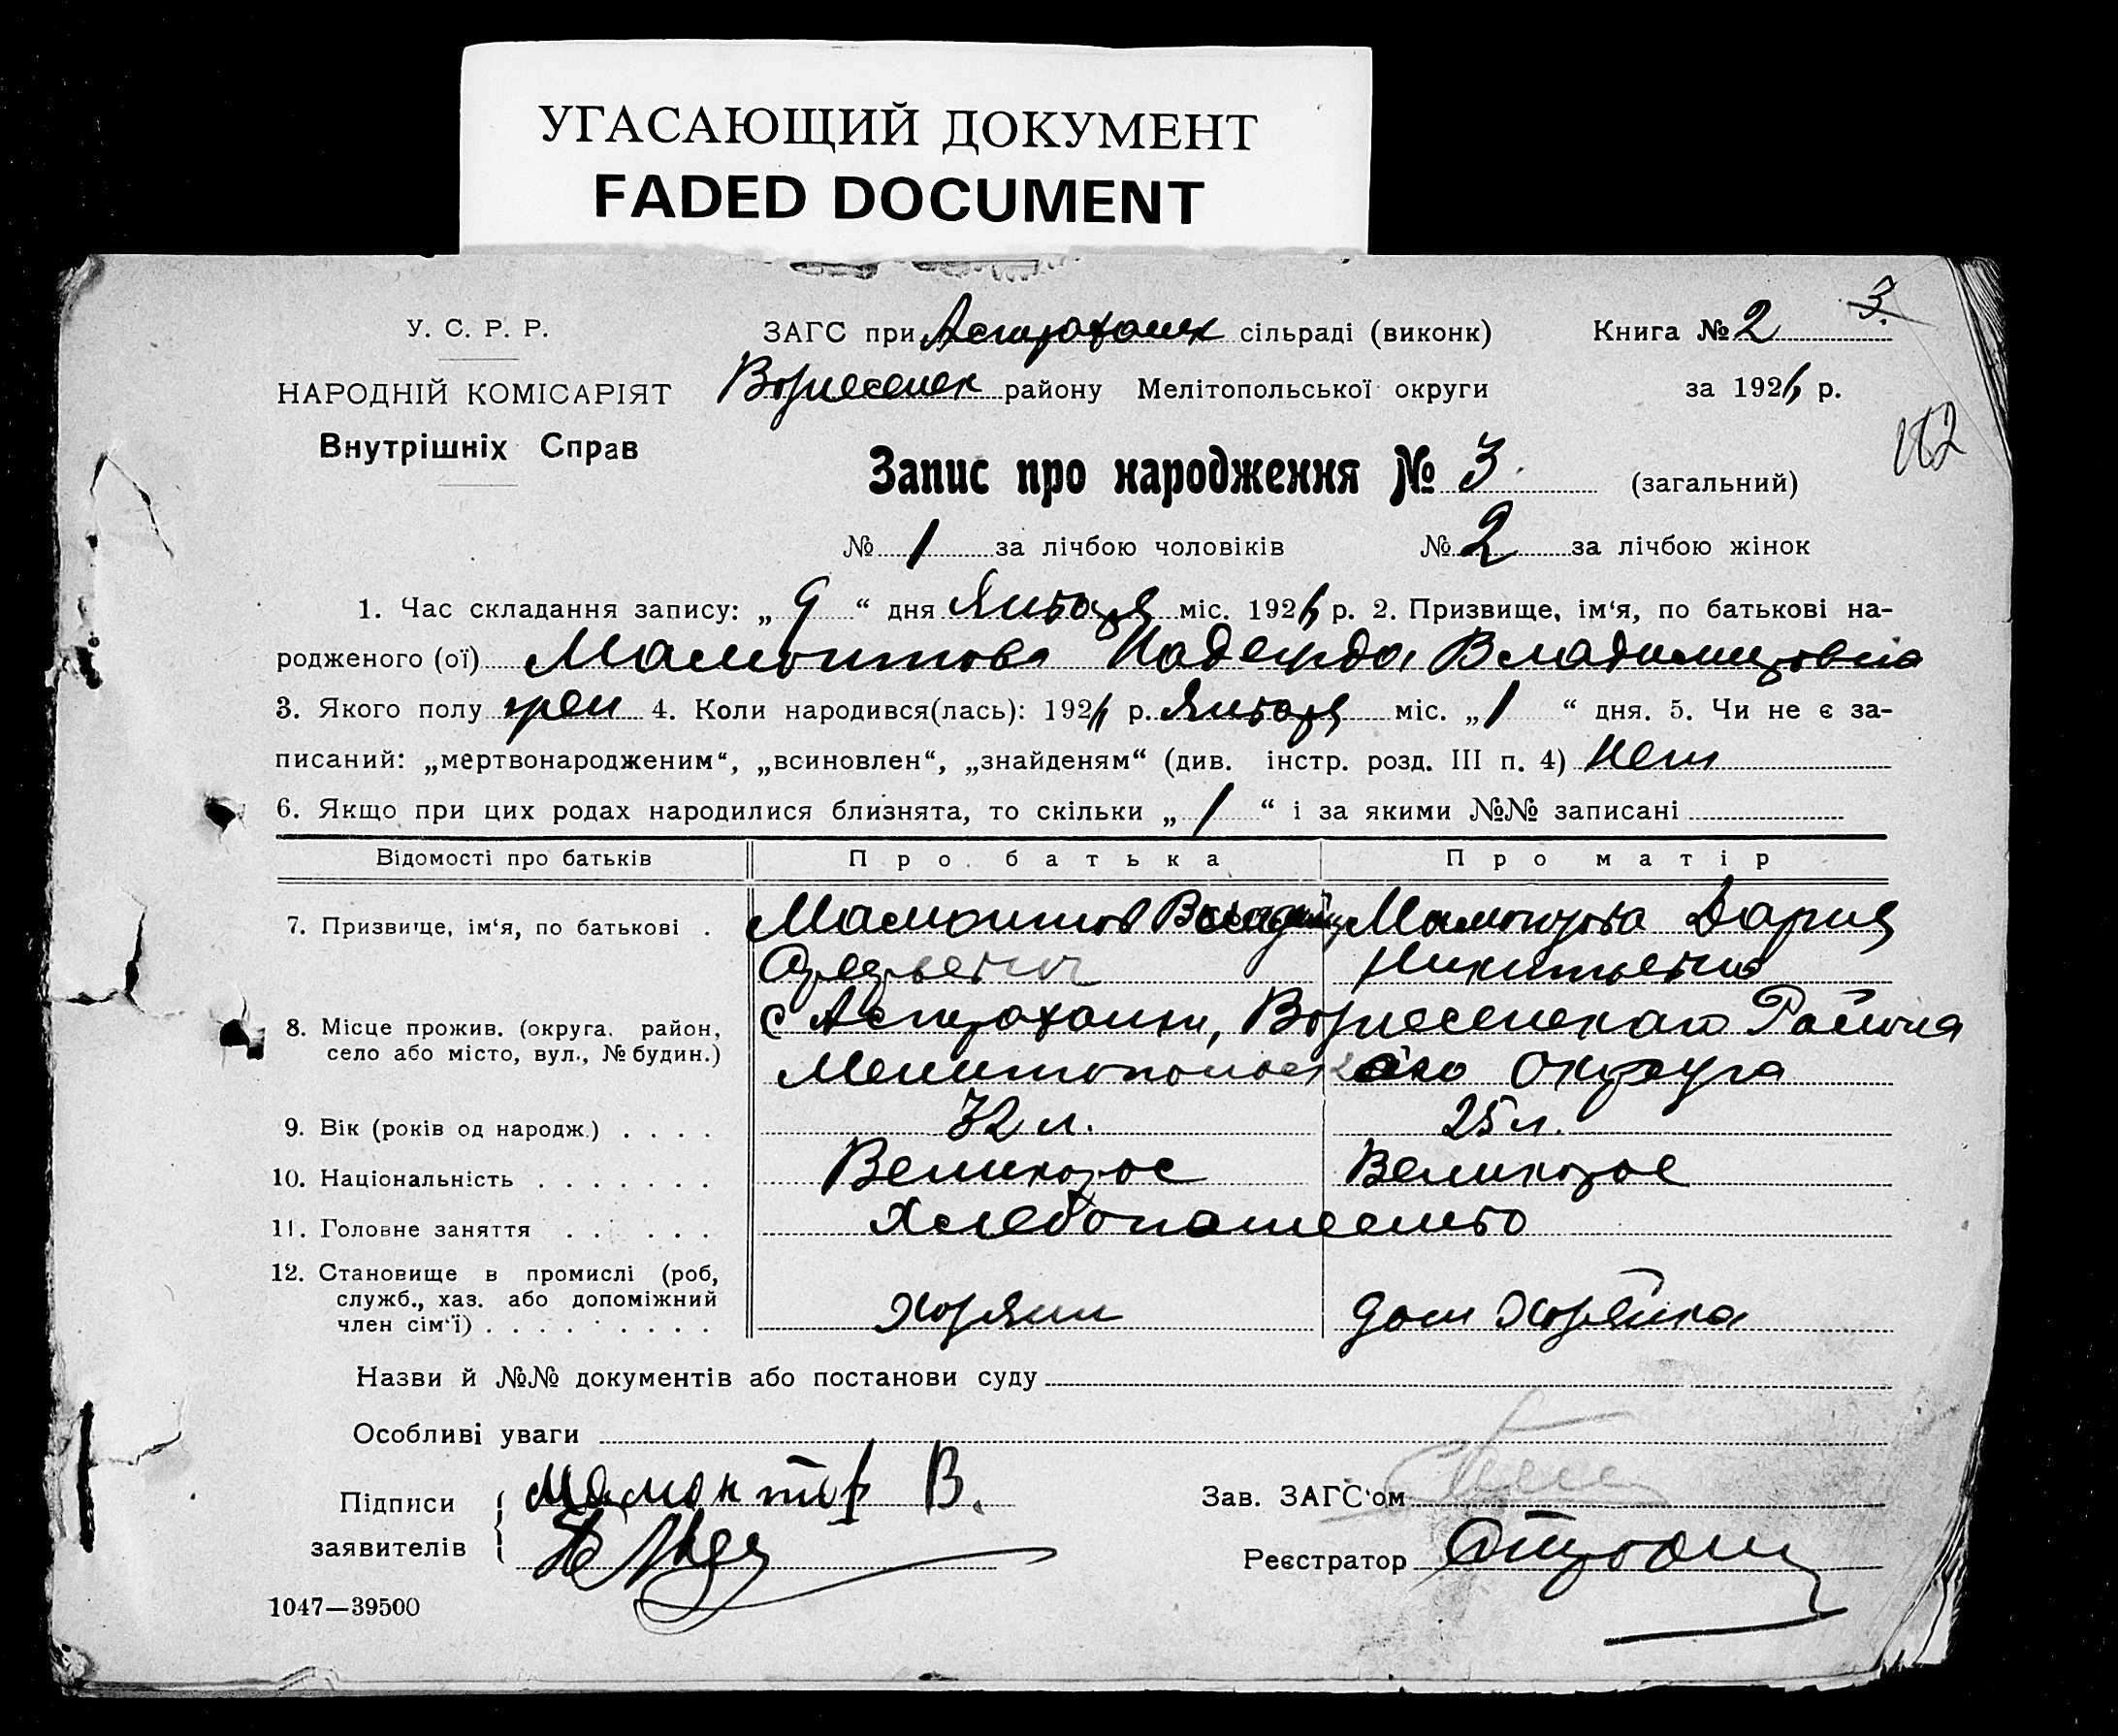 УГАСАЮЩИЙ ДОКУМЕНТ
FADED DOCUMENT
3.
У. С. Р. Р.
ЗАГС при Астраханск сільраді (виконк)
Книга № 2
НАРОДНІЙ КОМІСАРІЯТ
Вознесенск району Мелітопольської округи
за 192 р.
Внутрішніх Справ
Запис про народження № 3. (загальний)
№ 1 за лічбою чоловіків № 2 за лічбою жінок
1. Час складання запису: „ 9 “ дня Января міс. 192 р. 2. Призвище, ім‘я, по батькові на-
родженого (ої) Мамонтова Надежда Владимировна
3. Якого полу жен 4. Коли народився(лась): 192 р. Января міс. „ 1 “ дня. 5. Чи не є за-
писаний: „мертвонародженим“, „всиновлен“, „знайденям“ (див. інстр. розд. III п. 4) Нет
6. Якщо при цих родах народилися близнята, то скільки „ 1 “ і за якими №№ записані
Відомості про батьків Про батька Про матір
7. Призвище, ім‘я, по батькові . Мамонтов Владимир Мамонтова Дария
Никитьевна
8. Місце прожив. (округа, район, с Астраханки, Вознесенскаго Района
село або місто, вул., № будин.) Мелитопольскаго Округа
9. Вік (років од народж.) . . . . 32 л. 25 л.
10. Національність . . . . . . . Великорос Великорос
11. Головне заняття . . . . . . Хлебопашество
12. Становище в промислі (роб,
служб., хаз. або допоміжний
член сім‘ї) . . . . . . . . . Хозяин дом Хозяйка
Назви й №№ документів або постанови суду
Особливі уваги
Підписи Мамонтов В.
Зав. ЗАГС‘ом
заявителів
Реєстратор
1047—39500